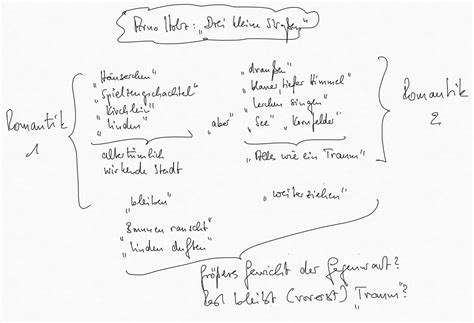 Arno Holz: „Drei kleine Straßen"
Romantik
1
„Häuserchen"
„Spielzeugschachtel"
„Kirchlein"
„Linden"
altertümlich
wirkende Stadt
„aber"
„draußen"
„blauer tiefer Himmel"
„Lerchen singen"
„See" „Kornfelder"
„Alles wie ein Traum"
Romantik
2
„bleiben"
„weiterziehen"
„Brunnen rauscht"
„Linden duften"
größeres Gewicht der Gegenwart?
Rest bleibt (vorerst) „Traum"?